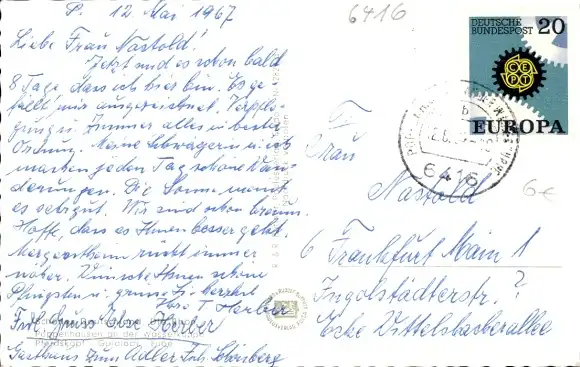 P. 12. Mai 1967
Liebe Frau Nastold!
Jetzt sind es schon bald
8 Tage, dass ich hier bin. Es ge-
fällt mir ausgezeichnet. Verpfle-
gung u. Zimmer alles in bester
Ordnung. Meine Schwägerin u. ich
machen jeden Tag schöne Wan-
derungen. Die Sonne meint
es sehr gut. Wir sind schon braun.
Hoffe, dass es Ihnen besser geht.
rückt immer
näher. Wünsche Ihnen schöne
Pfingsten u. grüsse Sie herzlich
Ihre T. Herber
Frdl. Gruss Else Herber
Gasthaus zum Adler
6416
DEUTSCHE
BUNDESPOST 20
CEPT
EUROPA
6416
6€
Frau
Nastold
6 Frankfurt Main 1
Ingolstädterstr. ?
Ecke Wittelsbacherallee